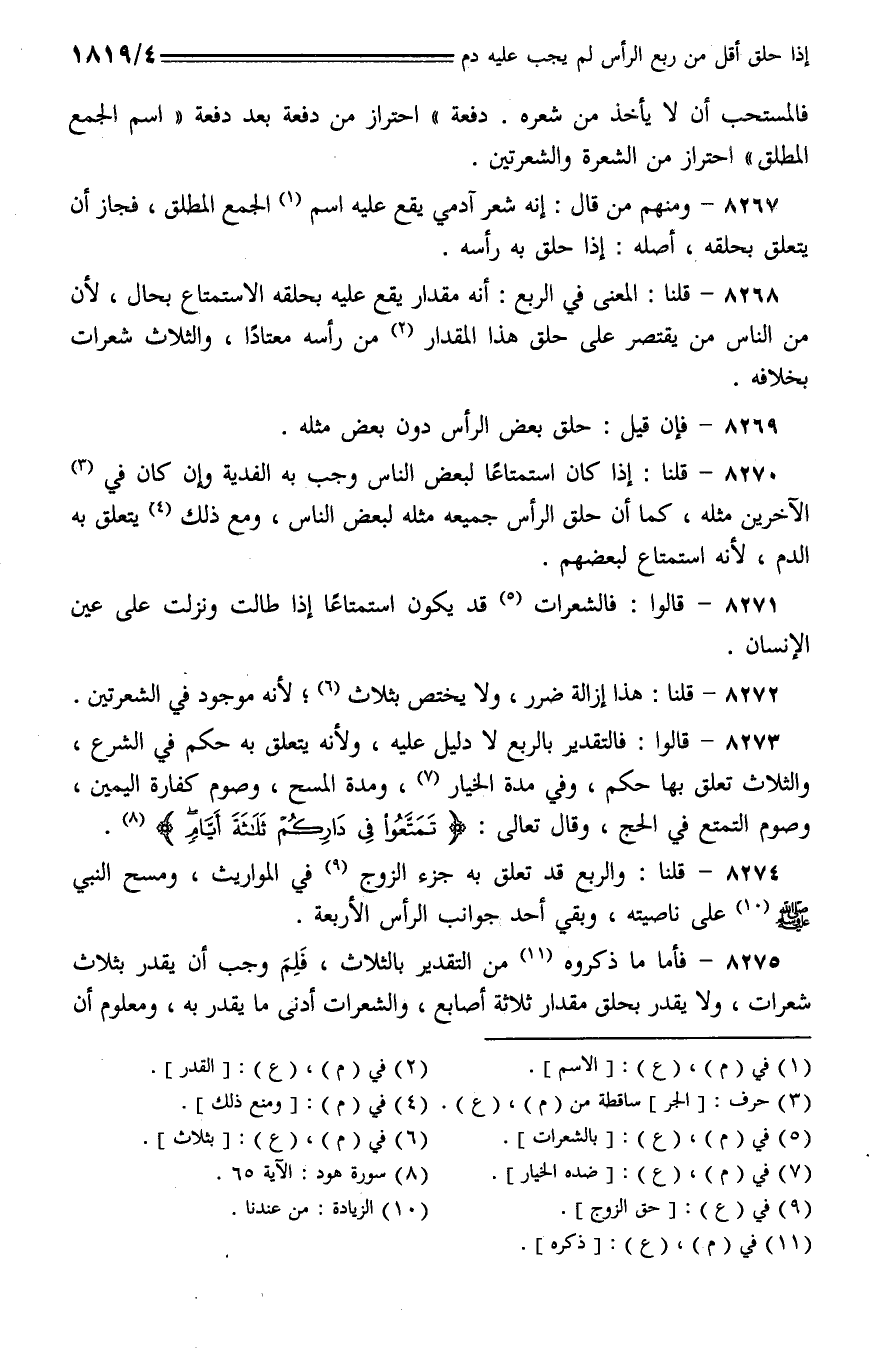 إذا حلق أقل من ربع الرأس لم يجب عليه دم ١٨١٩/٤
فالمستحب أن لا يأخذ من شعره . دفعة » احتراز من دفعة بعد دفعة « اسم الجمع
المطلق» احتراز من الشعرة والشعرتين .
٨٢٦٧ – ومنهم من قال : إنه شعر آدمي يقع عليه اسم (١) الجمع المطلق ، فجاز أن
يتعلق بحلقه ، أصله : إذا حلق به رأسه .
٨٢٦٨ – قلنا : المعنى في الربع : أنه مقدار يقع عليه بحلقه الاستمتاع بحال ، لأن
من الناس من يقتصر على حلق هذا المقدار (٢) من رأسه معتادًا ، والثلاث شعرات
بخلافه .
٨٢٦٩ – فإن قيل : حلق بعض الرأس دون بعض مثله .
٨٢٧٠ – قلنا : إذا كان استمتاعًا لبعض الناس وجب به الفدية وإن كان في (٣)
الآخرين مثله ، كما أن حلق الرأس جميعه مثله لبعض الناس ، ومع ذلك (٤) يتعلق به
الدم ، لأنه استمتاع لبعضهم .
٨٢٧١ – قالوا : فالشعرات (٥) قد يكون استمتاعًا إذا طالت ونزلت على عين
الإنسان .
٨٢٧٢ – قلنا : هذا إزالة ضرر ، ولا يختص بثلاث (٦) ؛ لأنه موجود في الشعرتين .
٨٢٧٣ – قالوا : فالتقدير بالربع لا دليل عليه ، ولأنه يتعلق به حكم في الشرع ،
والثلاث تعلق بها حكم ، وفي مدة الخيار (٧) ، ومدة المسح ، وصوم كفارة اليمين ،
وصوم التمتع في الحج ، وقال تعالى : ﴿ تَمَتَّعُوا۟ فِى دَارِكُمْ ثَلَـٰثَةَ أَيَّامٍۖ ﴾ (٨) .
٨٢٧٤ – قلنا : والربع قد تعلق به جزء الزوج (٩) في المواريث ، ومسح النبي
ﷺ (١٠) على ناصيته ، وبقي أحد جوانب الرأس الأربعة .
٨٢٧٥ – فأما ما ذكروه (١١) من التقدير بالثلاث ، فَلِمَ وجب أن يقدر بثلاث
شعرات ، ولا يقدر بحلق مقدار ثلاثة أصابع ، والشعرات أدنى ما يقدر به ، ومعلوم أن
(١) في ( م ) ، ( ع ) : [ الاسم ] . (٢) في ( م ) ، ( ع ) : [ القدر ] .
(٣) حرف : [ الجر ] ساقطة من ( م ) ، ( ع ) . (٤) في ( م ) : [ ومنع ذلك ] .
(٥) في ( م ) ، ( ع ) : [ بالشعرات ] . (٦) في ( م ) ، ( ع ) : [ بثلاث ] .
(٧) في ( م ) ، ( ع ) : [ ضده الخيار ] . (٨) سورة هود : الآية ٦٥ .
(٩) في ( ع ) : [ حق الزوج ] . (١٠) الزيادة : من عندنا .
(١١) في ( م ) ، ( ع ) : [ ذكره ] .